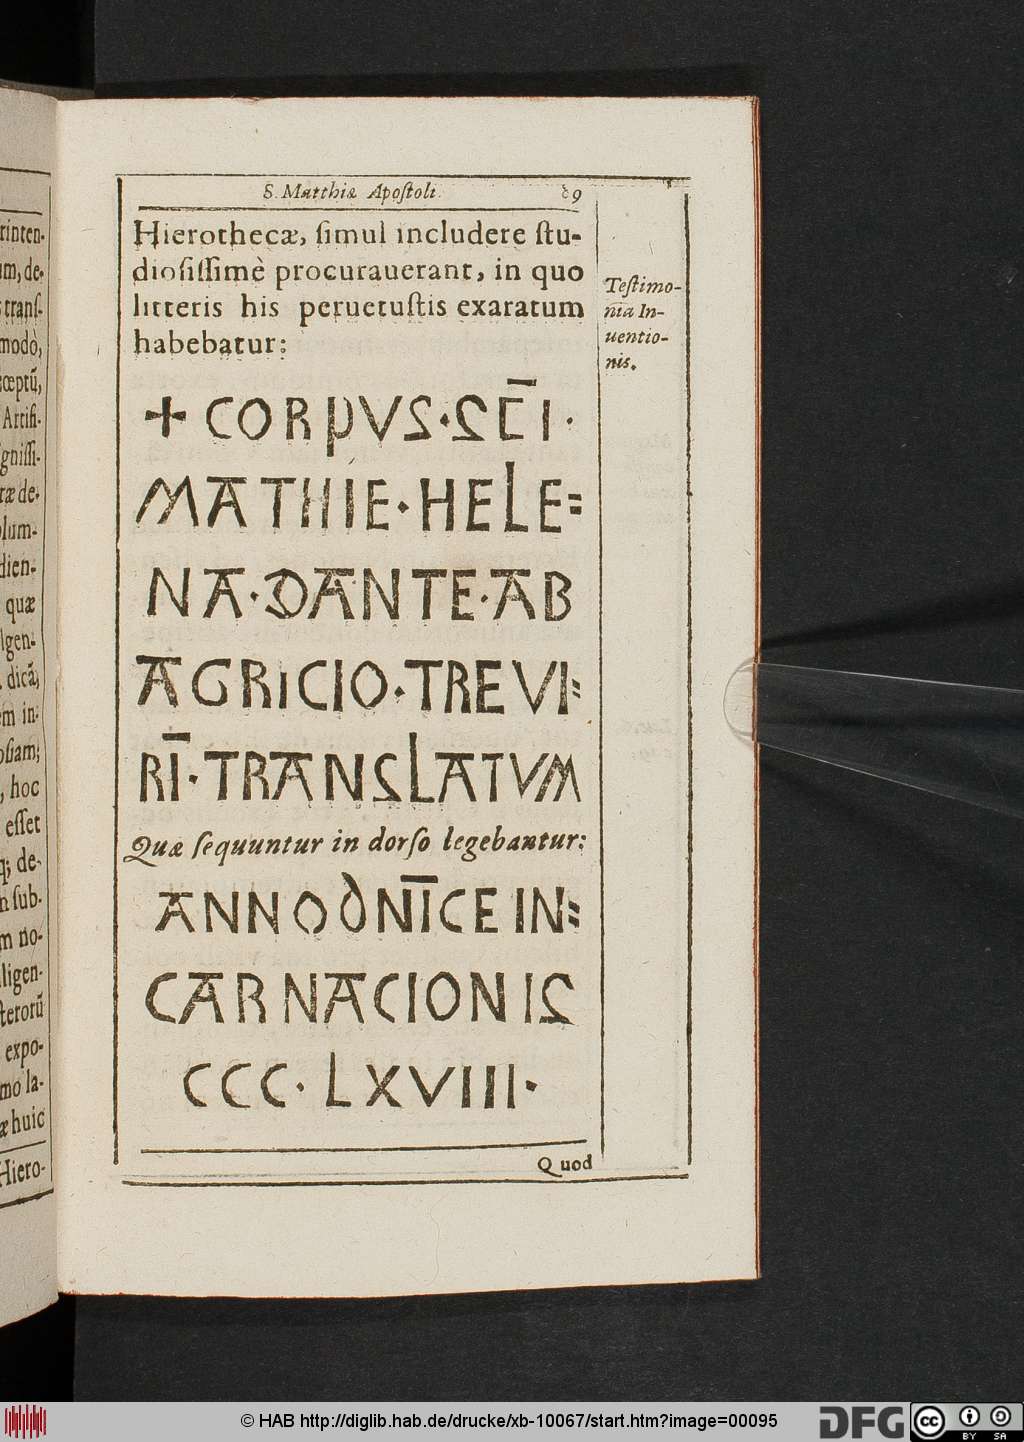 rinten-
um, de-
trans-
modò,
cceptū,
Artifi-
igniſſi-
ræ de-
olum-
dien-
quæ
lgen-
dicā,
em in-
oſiam;
, hoc
eſſet
q; de-
n ſub-
m no-
ligen-
ſterorū
expo-
mo la-
æ huic
Hiero-
S. Matthiæ Apoſtoli. 89
Hierothecæ, ſimul includere ſtu-
dioſiſſimè procurauerant, in quo
litteris his peruetuſtis exaratum
habebatur:
Teſtimo-
nia In-
uentio-
nis.
+ CORPVS · SC̅I ·
MATHIE · HELE=
NA · DANTE · AB
AGRICIO · TREVI=
RI̅ · TRANSLATVM
Quæ ſequuntur in dorſo legebantur:
ANNO DNI̅CE IN=
CARNACIONIS
CCC · LXVIII ·
Quod
© HAB http://diglib.hab.de/drucke/xb-10067/start.htm?image=00095
DFG
cc BY SA